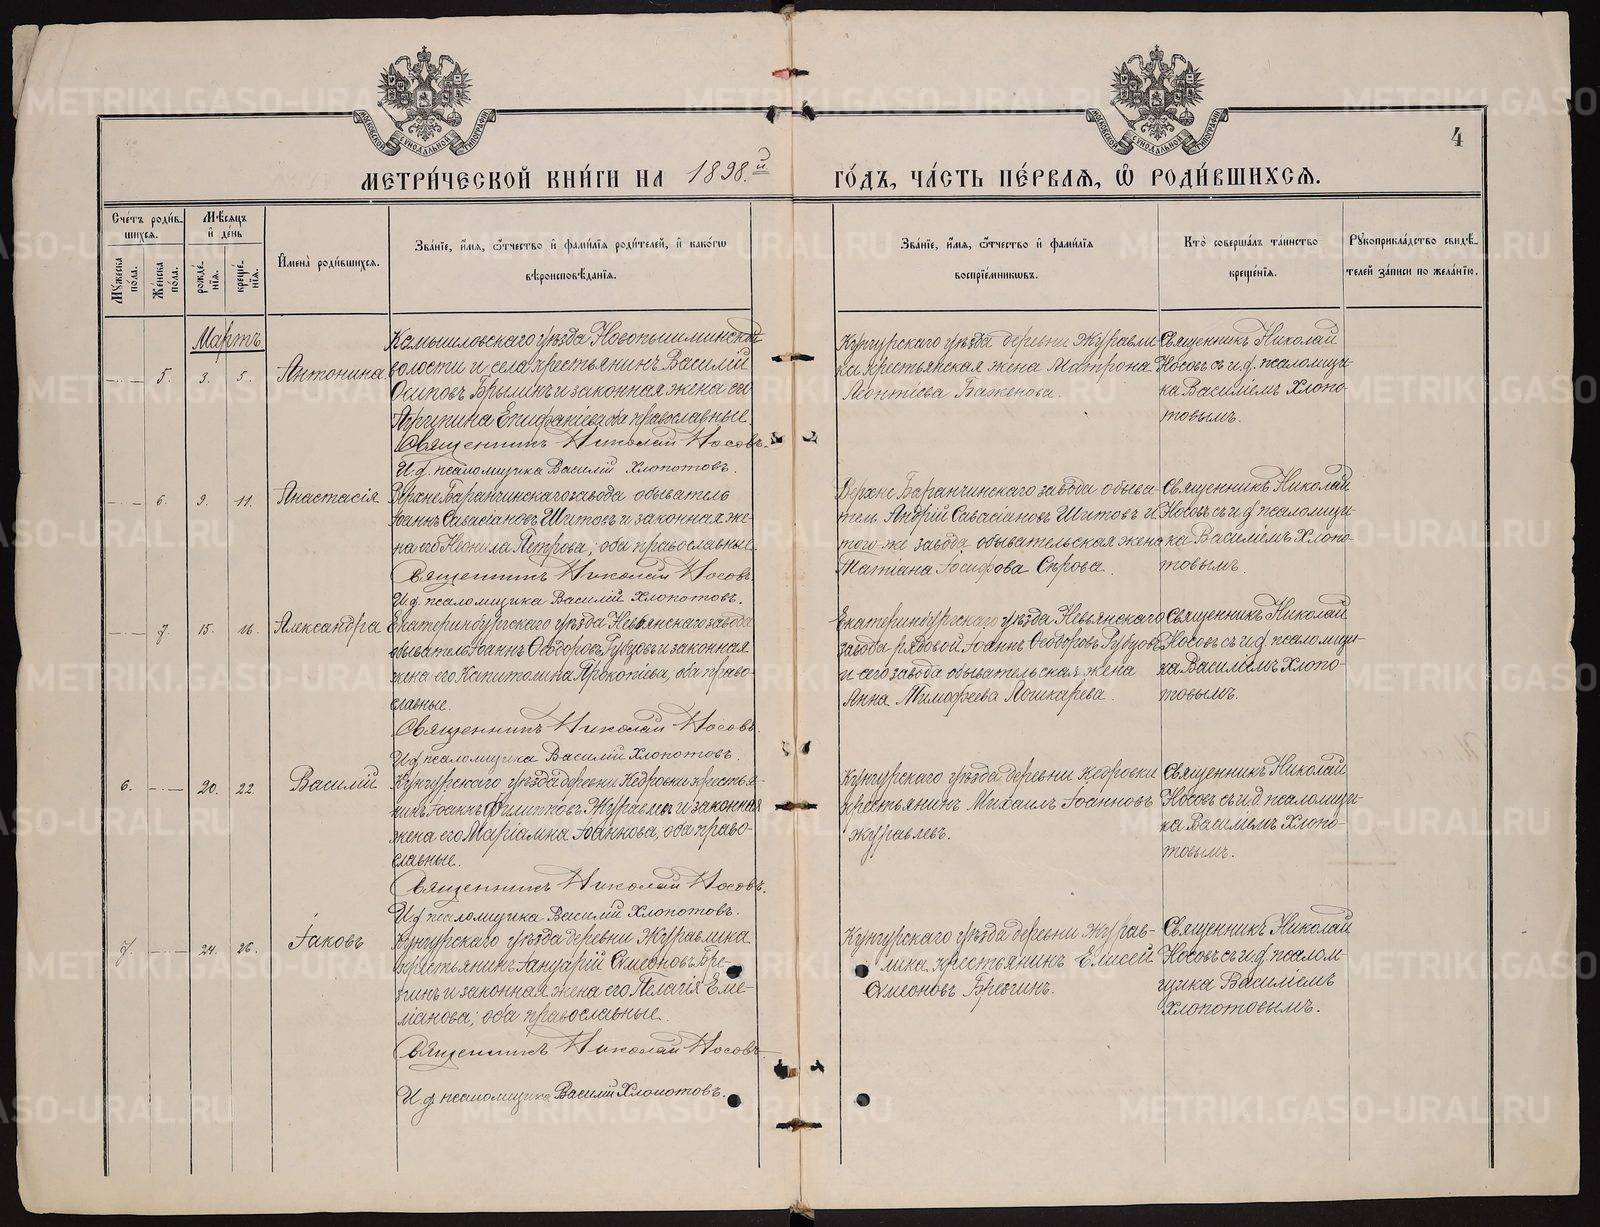 4
МЕТРИЧЕСКОЙ КНИГИ НА 1898.й ГОДЪ, ЧАСТЬ ПЕРВАЯ, Ѡ РОДИВШИХСЯ.
МОСКОВСКОЙ СѴНОДАЛЬНОЙ ТИПОГРАФІИ
МОСКОВСКОЙ СѴНОДАЛЬНОЙ ТИПОГРАФІИ
Счетъ родившихся.
Мужеска пола.
Женска пола.
Мѣсяцъ и день
рожденія.
крещенія.
Имена родившихся.
Званіе, имя, отчество и фамилія родителей, и какогѡ
вѣроисповѣданія.
Званіе, имя, отчество и фамилія
воспріемниковъ.
Кто совершалъ таинство
крещенія.
Рукоприкладство свидѣ-
телей записи по желанію.
Мартъ
5. 3. 5. Антонина
Камышловскаго уѣзда Новопышминской
волости и села крестьянинъ Василій
Осиповъ и законная жена его
Агрипина Епифаніева оба православные.
Священникъ Николай Носовъ.
И.д. псаломщика Василій Хлопотовъ.
Кунгурскаго уѣзда деревни Журавли
ки крестьянская жена Матрона
Леонтіева Баженова.
Священникъ Николай
Носовъ съ и.д. псаломщи-
ка Василіемъ Хлопо-
товымъ.
6. 9. 11. Анастасія
Верхне Баранчинскаго завода обыватель
Іоаннъ Савасіановъ Шитовъ и законная же-
на его Неонила Петрова; оба православные.
Священникъ Николай Носовъ.
И.д. псаломщика Василій Хлопотовъ.
Верхне Баранчинскаго завода обыва-
тель Андрій Савасіановъ Шитовъ и
того-же завода обывательская жена
Татіана Іосифова Сѣрова.
Священникъ Николай
Носовъ съ и.д. псаломщи-
ка Василіемъ Хлопо-
товымъ.
7. 15. 16. Александра
Екатеринбургскаго уѣзда Невьянскаго завода
обыватель Іоаннъ Ѳеодоровъ Рубцовъ и законная
жена его Капитолина Прокопіева, оба право-
славные.
Священникъ Николай Носовъ.
И.д. псаломщика Василій Хлопотовъ.
Екатеринбургскаго уѣзда Невьянскаго
завода рядовой Іоаннъ Ѳеодоровъ Рубцовъ
и сего завода обывательская жена
Анна Тимофеева Лошкарева.
Священникъ Николай
Носовъ съ и.д. псаломщи-
ка Василіемъ Хлопо-
товымъ.
6. 20. 22. Василій
Кунгурскаго уѣзда деревни Кедровки крестья-
нинъ Іоаннъ Филипповъ Журавлевъ и законная
жена его Маріамна Іоаннова, оба право-
славные.
Священникъ Николай Носовъ.
И.д. псаломщика Василій Хлопотовъ.
Кунгурскаго уѣзда деревни Кедровки
крестьянинъ Михаилъ Іоанновъ
Журавлевъ.
Священникъ Николай
Носовъ съ и.д. псаломщи-
ка Василіемъ Хлопо-
товымъ.
7. 24. 26. Іаковъ
Кунгурскаго уѣзда деревни Журавлика
крестьянинъ Іануарій Симеоновъ Бре-
згинъ и законная жена его Пелагія Еме-
ліанова; оба православные.
Священникъ Николай Носовъ
И.д. псаломщика Василій Хлопотовъ.
Кунгурскаго уѣзда деревни Журав-
лика, крестьянинъ Елисей
Симеоновъ Брезгинъ.
Священникъ Николай
Носовъ съ и.д. псалом-
щика Василіемъ
Хлопотовымъ.
METRIKI.GASO-URAL.RU